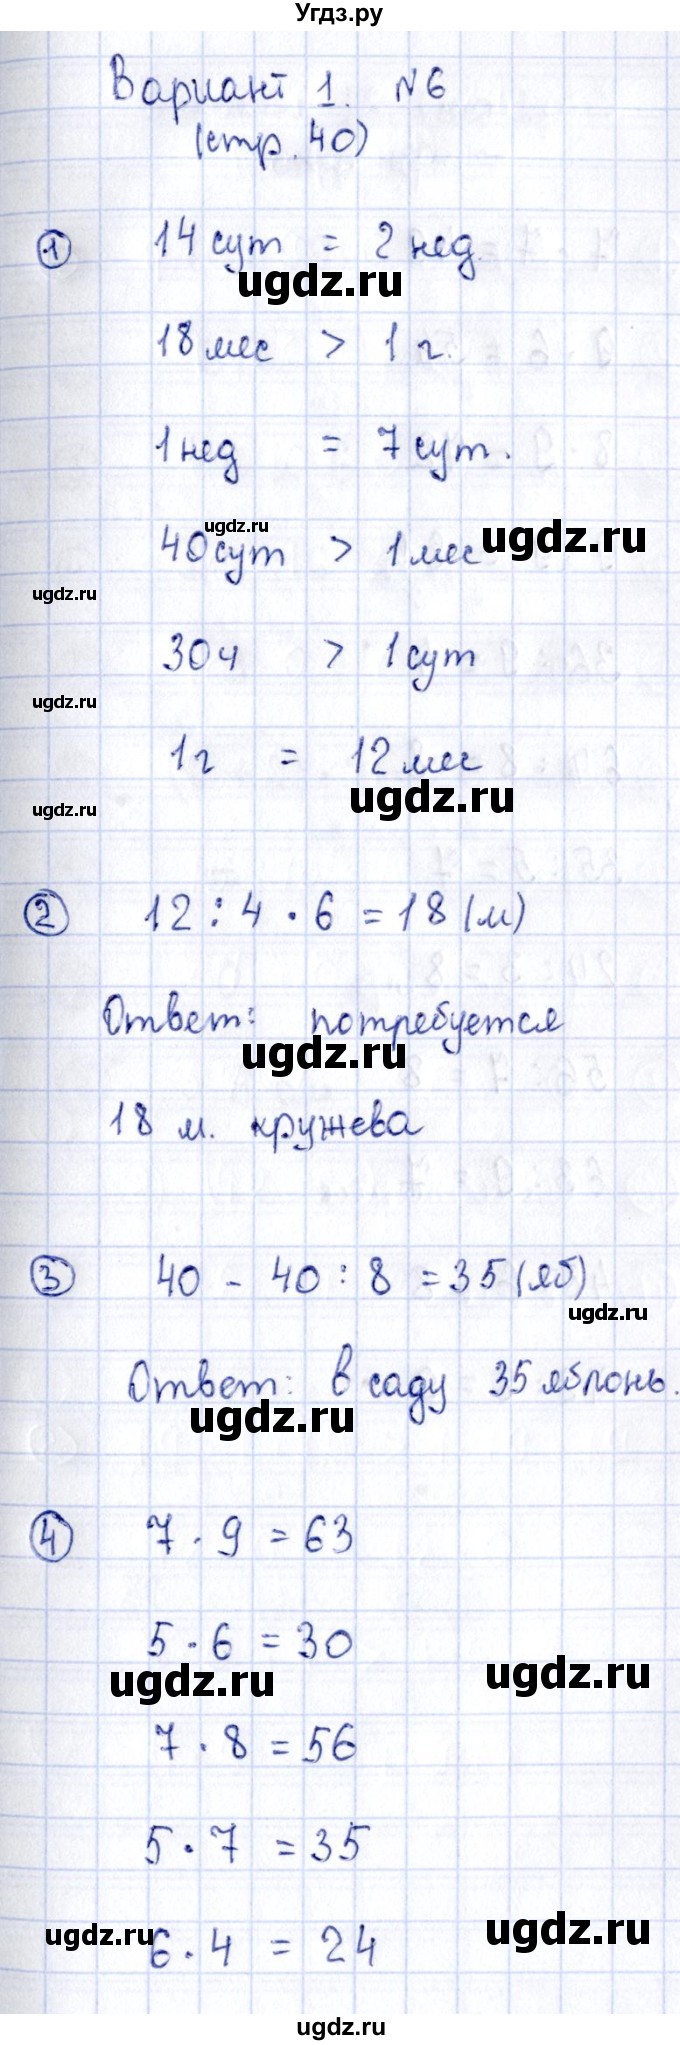 Угдз.ру
Вариант 1. №6
(стр. 40)
1 14 сут = 2 нед.
ugdz.ru
18 мес > 1 г.
1 нед = 7 сут.
ugdz.ru
40 сут > 1 мес
ugdz.ru
ugdz.ru
30 ч > 1 сут
ugdz.ru
1 г = 12 мес
ugdz.ru
ugdz.ru
2 12 : 4 · 6 = 18 (м)
Ответ: потребуется
ugdz.ru
18 м. кружева
3 40 - 40 : 8 = 35 (яб)
ugdz.ru
Ответ: в саду 35 яблонь.
ugdz.ru
4 7 · 9 = 63
5 · 6 = 30
ugdz.ru
ugdz.ru
7 · 8 = 56
5 · 7 = 35
ugdz.ru
ugdz.ru
6 · 4 = 24
ugdz.ru